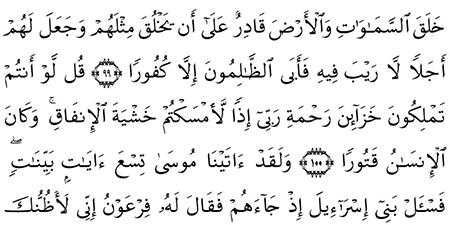 خَلَقَ ٱلسَّمَٰوَٰتِ وَٱلْأَرْضَ قَادِرٌ عَلَىٰٓ أَن يَخْلُقَ مِثْلَهُمْ وَجَعَلَ لَهُمْ
أَجَلًا لَّا رَيْبَ فِيهِ فَأَبَى ٱلظَّٰلِمُونَ إِلَّا كُفُورًا ۝٩٩ قُل لَّوْ أَنتُمْ
تَمْلِكُونَ خَزَآئِنَ رَحْمَةِ رَبِّىٓ إِذًا لَّأَمْسَكْتُمْ خَشْيَةَ ٱلْإِنفَاقِ ۚ وَكَانَ
ٱلْإِنسَٰنُ قَتُورًا ۝١٠٠ وَلَقَدْ ءَاتَيْنَا مُوسَىٰ تِسْعَ ءَايَٰتٍۭ بَيِّنَٰتٍ ۖ
فَسْـَٔلْ بَنِىٓ إِسْرَٰٓءِيلَ إِذْ جَآءَهُمْ فَقَالَ لَهُۥ فِرْعَوْنُ إِنِّى لَأَظُنُّكَ